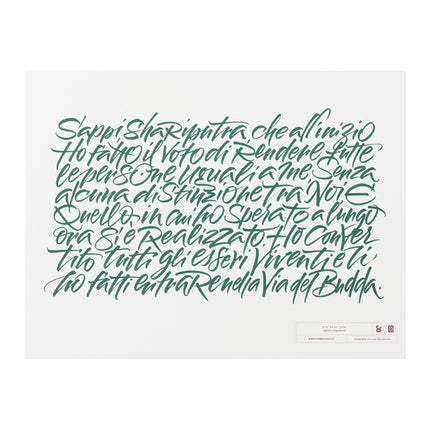 Sappi Shariputra, che all'inizio
Ho fatto il voto di Rendere tutte
le persone uguali a me, Senza
alcuna distinzione tra Noi E
Quello in cui ho Sperato a lungo
ora si è Realizzato. Ho Conver
tito tutti gli esseri Viventi e li
ho fatti entrare nella Via del Budda.